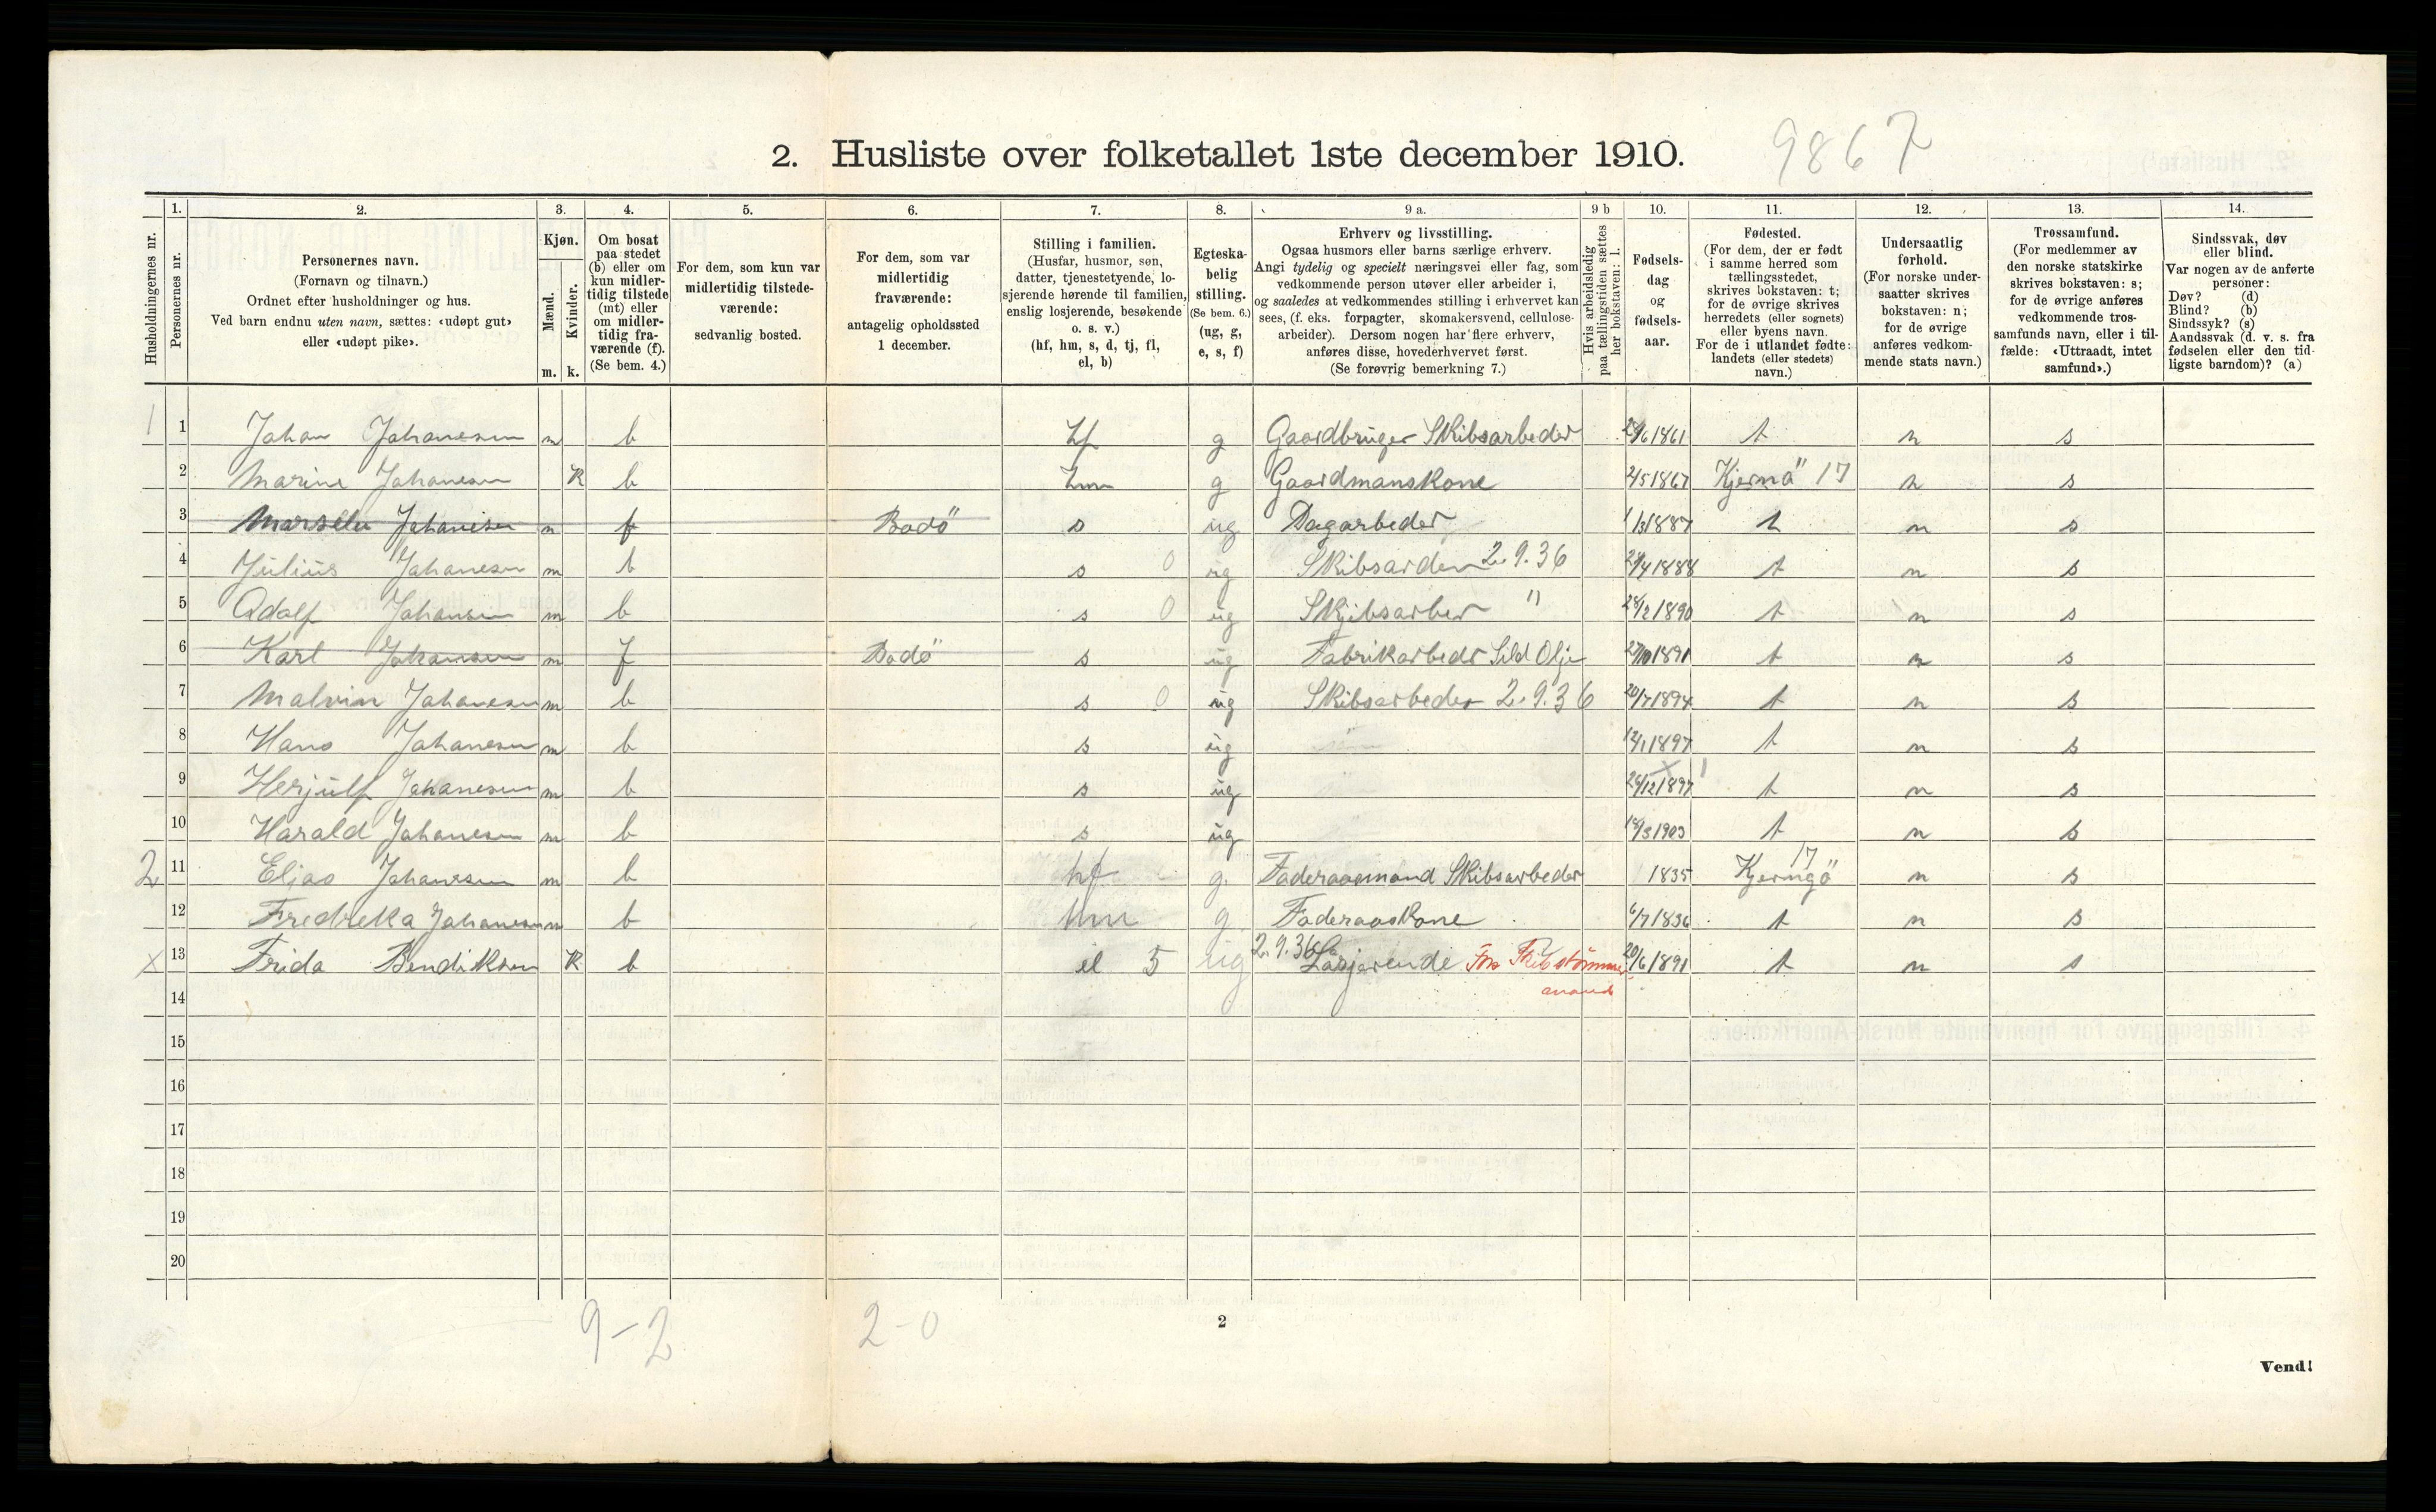 2. Husliste over folketallet 1ste december 1910.
9867
1. 2. 3. 4. 5. 6. 7. 8. 9 a. 9 b 10. 11. 12. 13. 14.
Husholdningernes nr.
Personernes nr.
Personernes navn.
(Fornavn og tilnavn.)
Ordnet efter husholdninger og hus.
Ved barn endnu uten navn, sættes: «udøpt gut»
eller «udøpt pike».
Kjøn.
Mænd.
Kvinder.
m. k.
Om bosat
paa stedet
(b) eller om
kun midler-
tidig tilstede
(mt) eller
om midler-
tidig fra-
værende (f).
(Se bem. 4.)
For dem, som kun var
midlertidig tilstede-
værende:
sedvanlig bosted.
For dem, som var
midlertidig
fraværende:
antagelig opholdssted
1 december.
Stilling i familien.
(Husfar, husmor, søn,
datter, tjenestetyende, lo-
sjerende hørende til familien,
enslig losjerende, besøkende
o. s. v.)
(hf, hm, s, d, tj, fl,
el, b)
Egteska-
belig
stilling.
(Se bem. 6.)
(ug, g,
e, s, f)
Erhverv og livsstilling.
Ogsaa husmors eller barns særlige erhverv.
Angi tydelig og specielt næringsvei eller fag, som
vedkommende person utøver eller arbeider i,
og saaledes at vedkommendes stilling i erhvervet kan
sees, (f. eks. forpagter, skomakersvend, cellulose-
arbeider). Dersom nogen har flere erhverv,
anføres disse, hovederhvervet først.
(Se forøvrig bemerkning 7.)
Hvis arbeidsledig
paa tællingstiden sættes
her bokstaven: l.
Fødsels-
dag
og
fødsels-
aar.
Fødested.
(For dem, der er født
i samme herred som
tællingsstedet,
skrives bokstaven: t;
for de øvrige skrives
herredets (eller sognets)
eller byens navn.
For de i utlandet fødte:
landets (eller stedets)
navn.)
Undersaatlig
forhold.
(For norske under-
saatter skrives
bokstaven: n;
for de øvrige
anføres vedkom-
mende stats navn.)
Trossamfund.
(For medlemmer av
den norske statskirke
skrives bokstaven: s;
for de øvrige anføres
vedkommende tros-
samfunds navn, eller i til-
fælde: «Uttraadt, intet
samfund».)
Sindssvak, døv
eller blind.
Var nogen av de anførte
personer:
Døv? (d)
Blind? (b)
Sindssyk? (s)
Aandssvak (d. v. s. fra
fødselen eller den tid-
ligste barndom)? (a)
1 1 Johan Johanesen m b hf g Gaardbruger Skibsarbeder 1861 t n s
2 Marine Johanesen K b hm g Gaardmanskone 2/5 1867 17 n s
3 Johanesen m f Bodö s ug Dagarbeder 1/3 1887 t n s
4 Julius Johanesen m b s 0 ug 2.9.36 1888 t n s
5 Adolf Johansen m b s 0 ug Skjibsarber " 28/2 1890 t n s
6 Karl Johansen m f Bodö s ug Fabrikarbedr Sild Olje 27/10 1891 t n s
7 Malvin Johanesen m b s 0 ug Skibsarbeder 2.9.36 20/7 1894 t n s
8 Hans Johanesen m b s ug 12/1 1897 t n s
9 Herjulf Johanesen m b s ug 26/12 1897 t n s
10 Harald Johanesen m b s ug 1903 t n s
2 11 Elias Johanesen m b hf g. Faderaasmand Skibsarbeder 1835 Kjerngö 17 n s
12 Fredreka Johanesen m b hm g Faderaaskone 6/7 1836 t n s
x 13 Frida Bendiksen K b el 5 ug 2.9.36 Losjerende 20/6 1891 t n s
14
15
16
17
18
19
20
9-2 2-0
2
Vend!